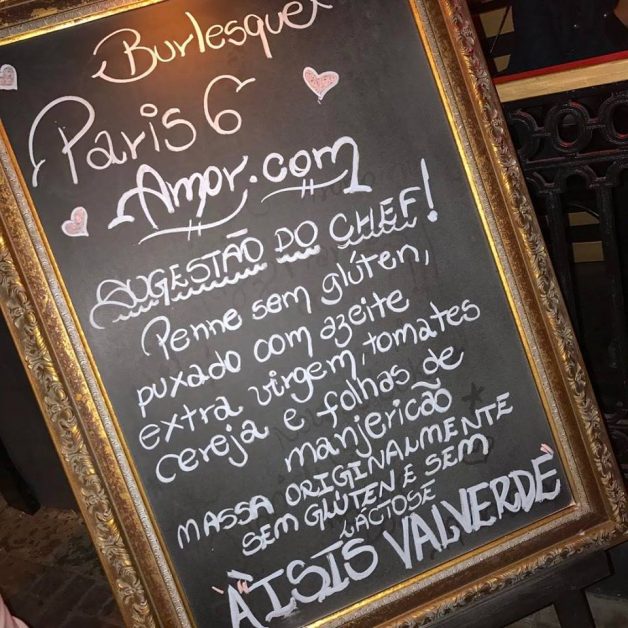 Burlesque
Paris 6
Amor.com
SUGESTÃO DO CHEF!
Penne sem glúten,
puxado com azeite
extra virgem, tomates
cereja e folhas de
manjericão
MASSA ORIGINALMENTE
SEM GLÚTEN E SEM
LÁCTOSE
"À ISIS VALVERDE"